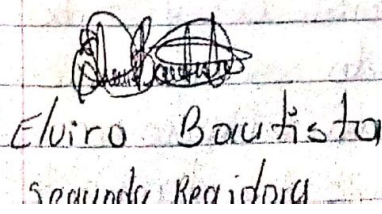 Elvira Bautista
Segunda Regidora